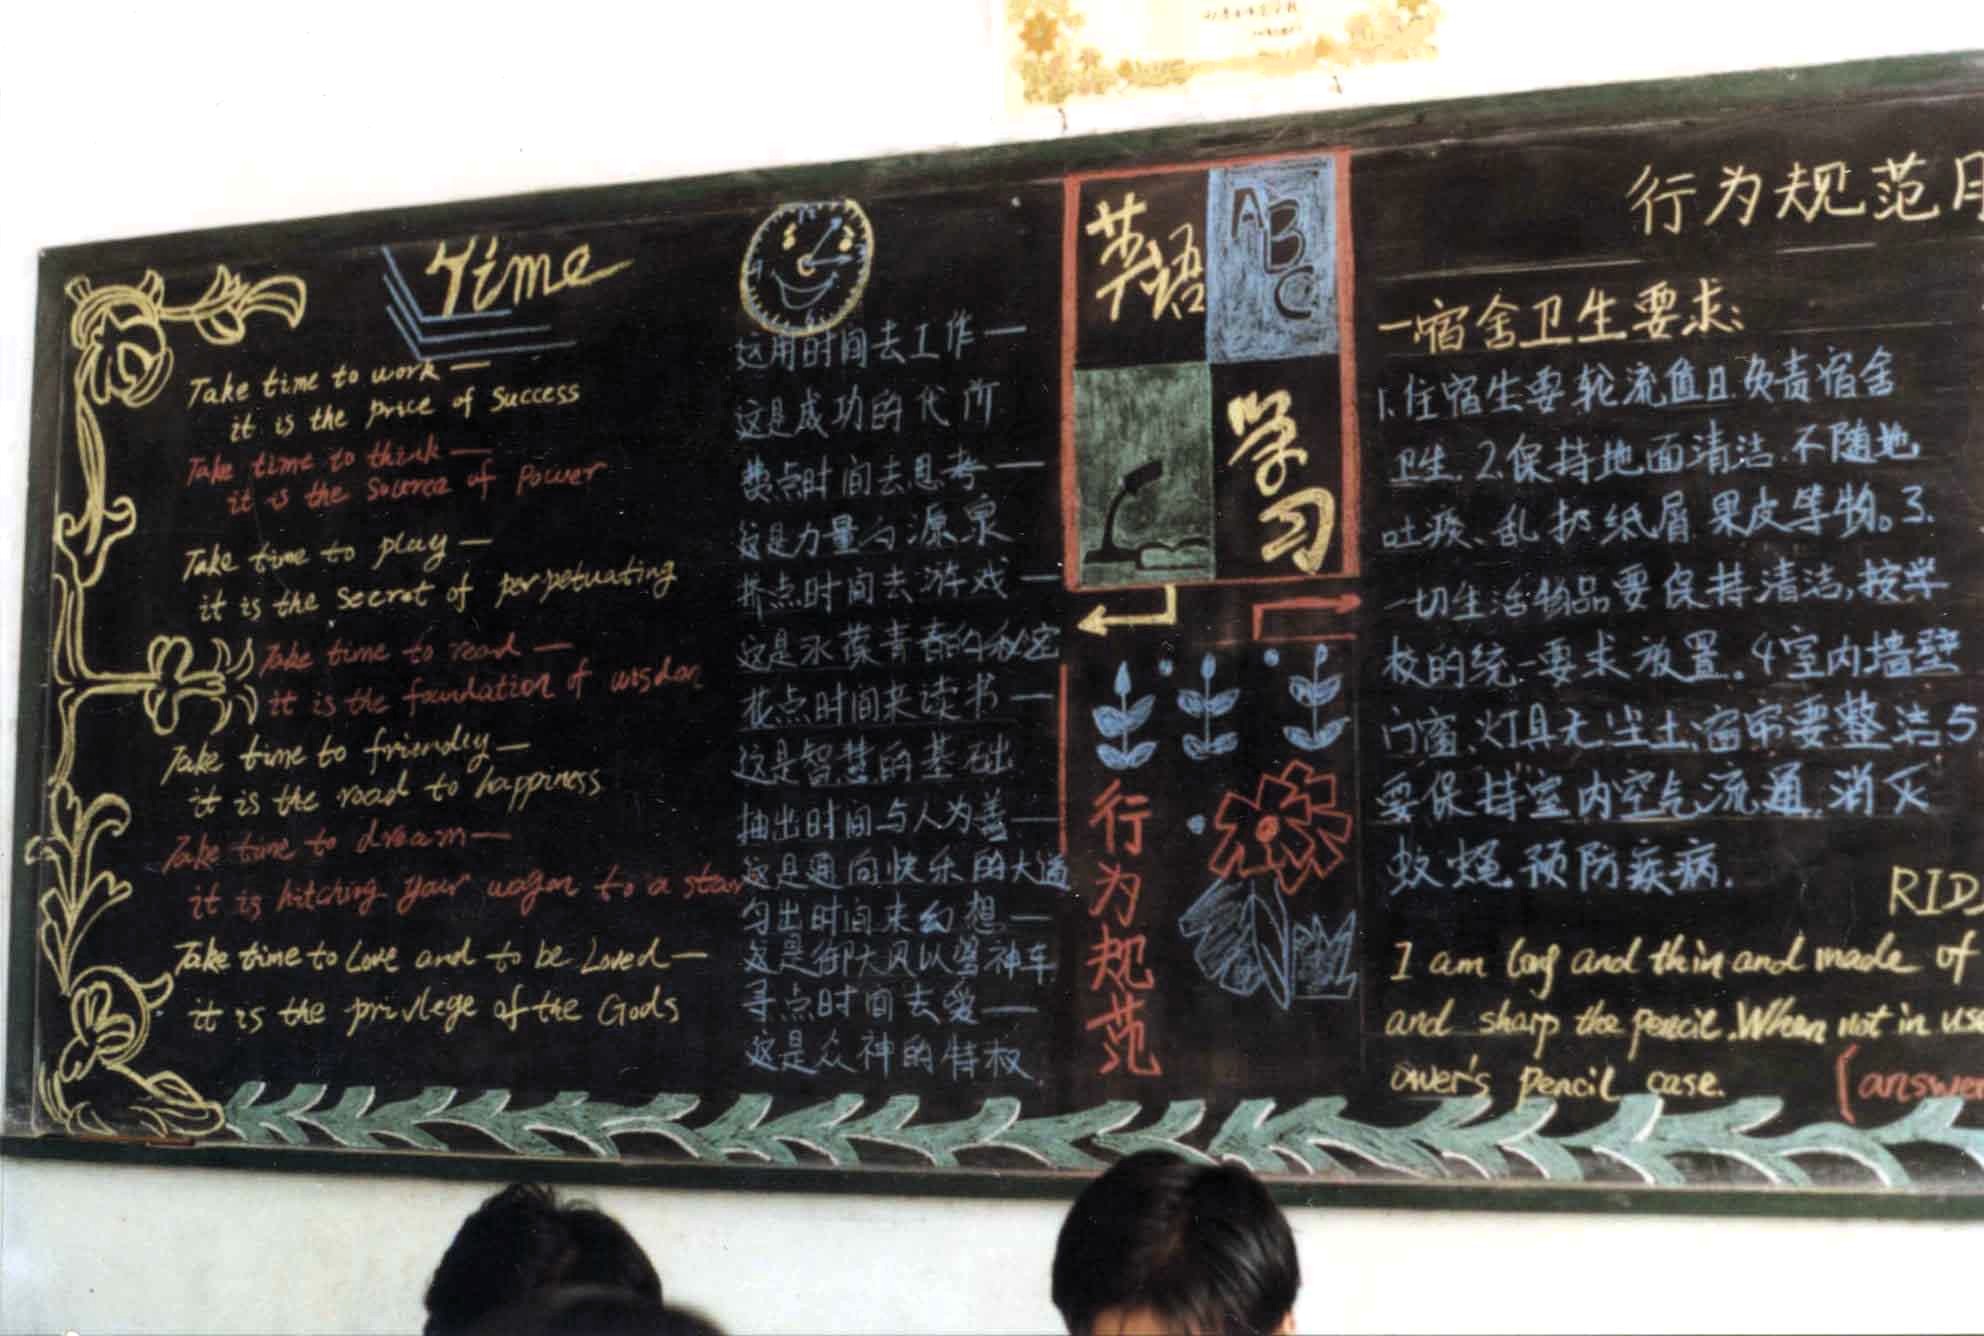 Time
Take time to work—
it is the price of success
Take time to think—
it is the source of power
Take time to play—
it is the secret of perpetuating
Take time to read—
it is the foundation of wisdom
Take time to friendly—
it is the road to happiness
Take time to dream—
it is hitching your wagon to a star
Take time to Love and to be Loved—
it is the privilege of the Gods
用时间去工作—
这是成功的代所
费点时间去思考—
这是力量的源泉
挤点时间去游戏—
这是永葆青春的秘密
花点时间来读书—
这是智慧的基础
抽出时间与人为善—
这是通向快乐的大道
匀出时间来幻想—
这是
神车
寻点时间去爱—
这是众神的特权
英语
ABC
学习
行为规范
行为规范
一宿舍卫生要求:
1.住宿生要轮流值日.负责宿舍
卫生.2.保持地面清洁.不随地
吐痰、乱扔纸屑果皮等物。3.
一切生活物品要保持清洁,按学
校的统一要求放置。4室内墙壁
门窗、灯具无尘土,窗帘要整洁5
要保持室内空气流通.消灭
蚊蝇.预防疾病.
RID
I am long and thin and made of
and sharp the pencil.When not in us
ower's pencil case.
(answe